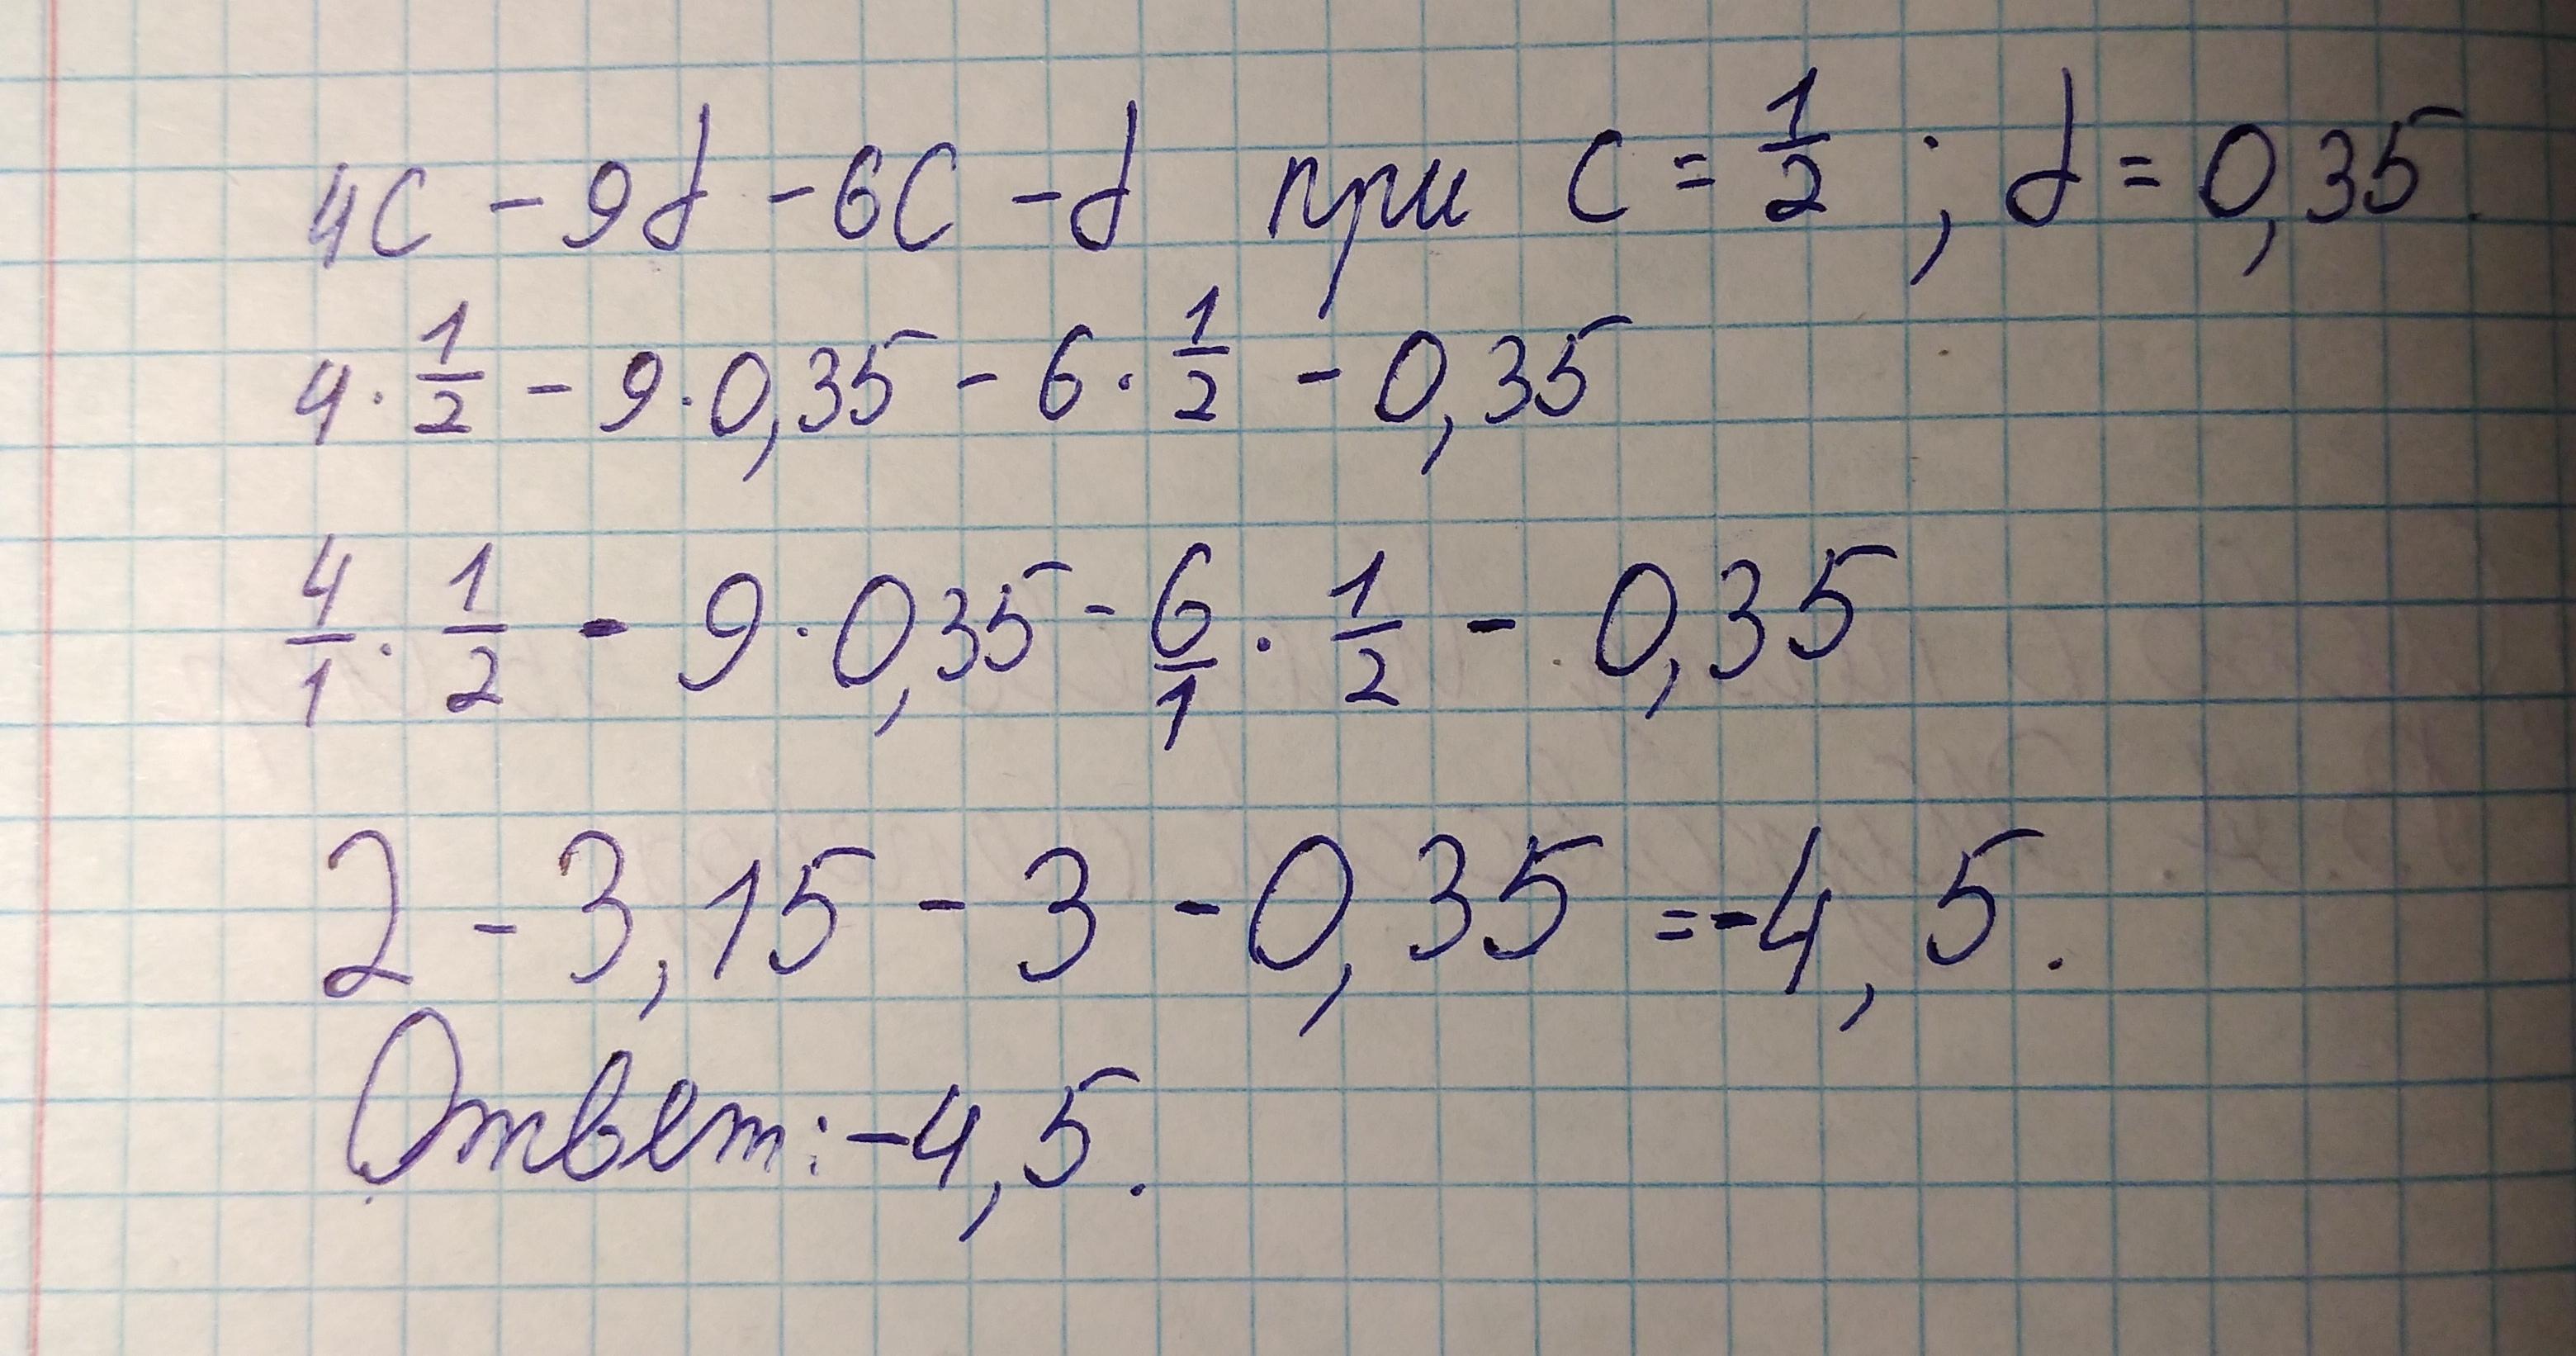 4c - 9d - 6c - d при c = 1/2 ; d = 0,35.
4 · 1/2 - 9 · 0,35 - 6 · 1/2 - 0,35
4/1 · 1/2 - 9 · 0,35 - 6/1 · 1/2 - 0,35
2 - 3,15 - 3 - 0,35 = -4,5.
Ответ: -4,5.